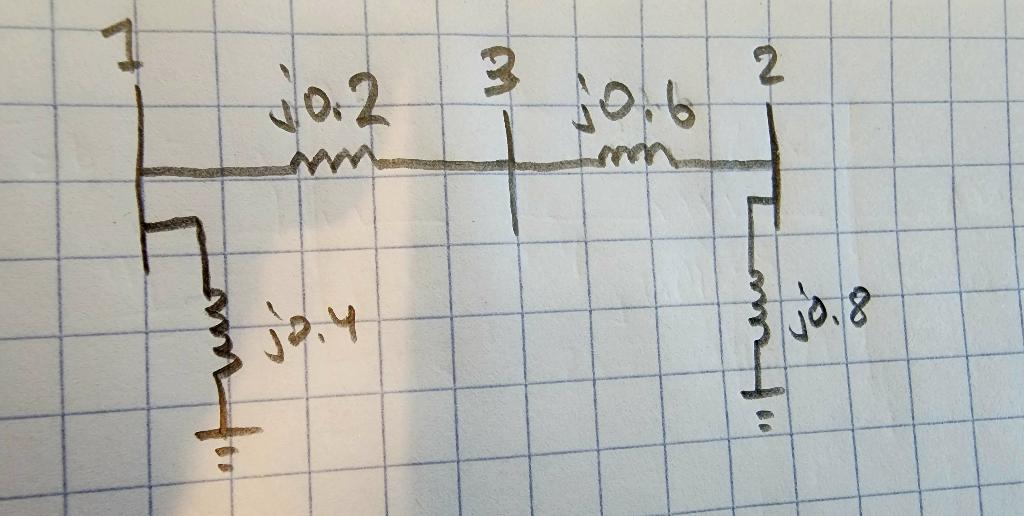 1 3 2
j0.2 j0.6
j0.4 j0.8